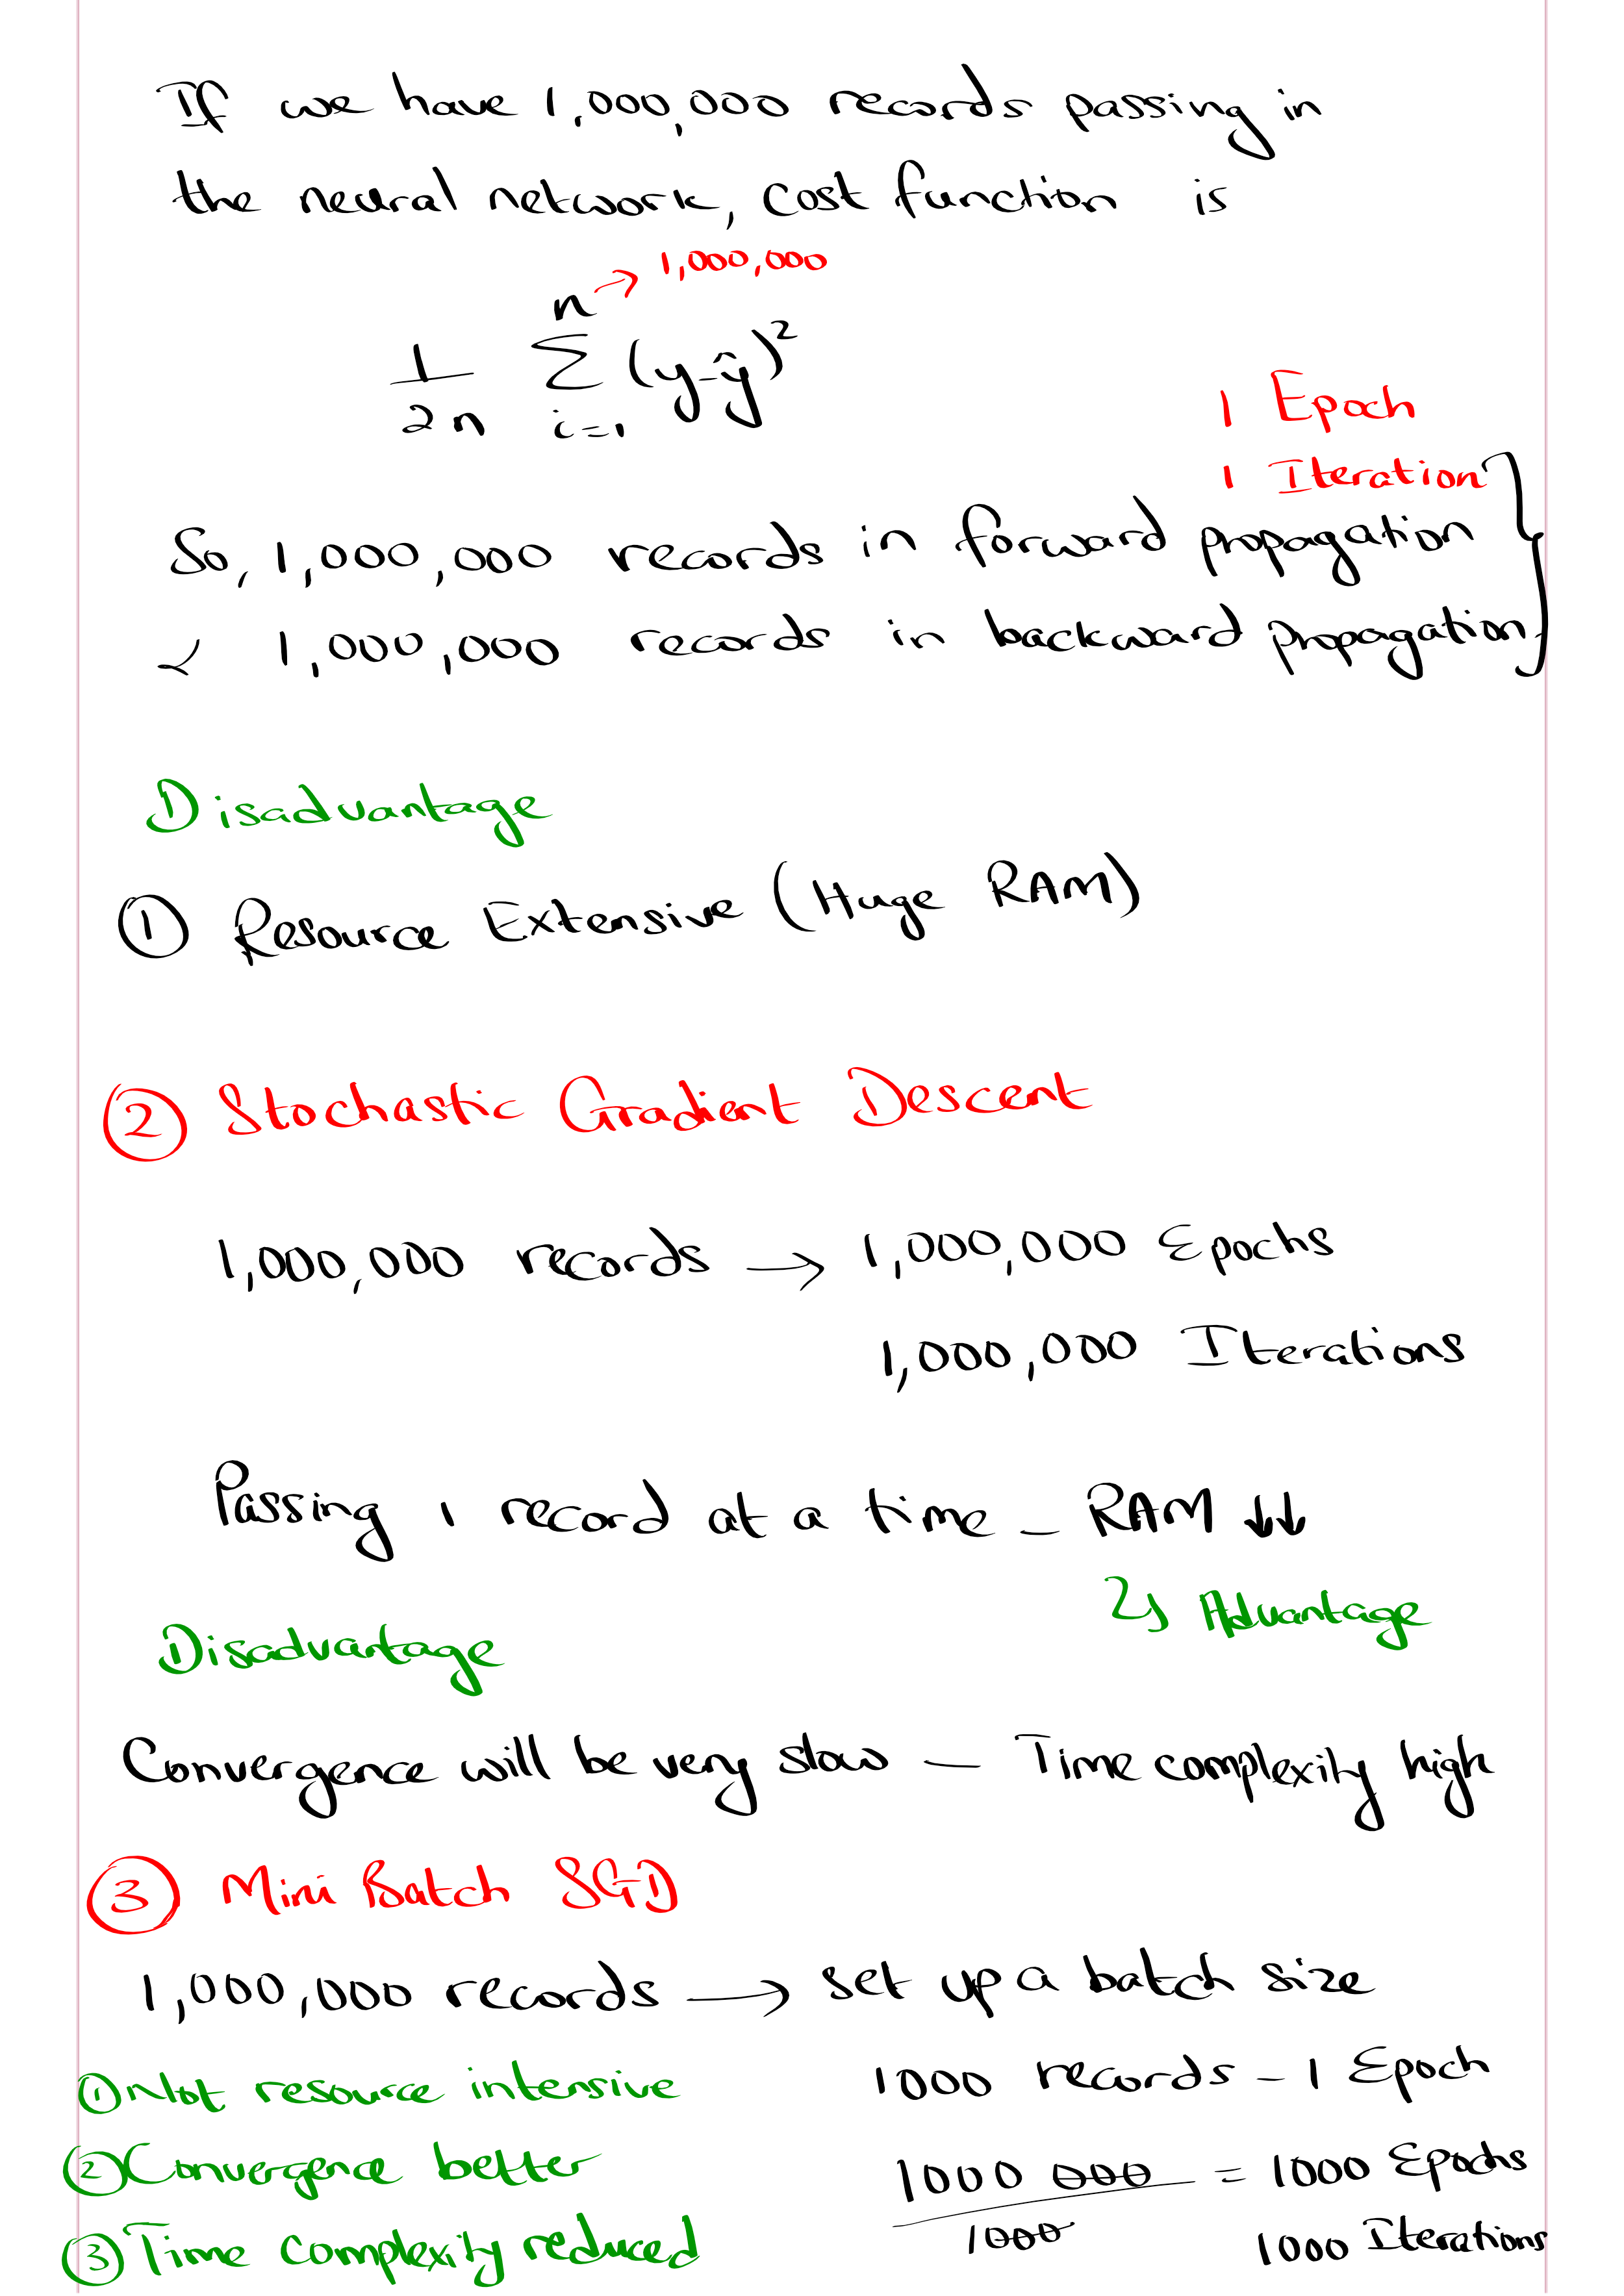 If we have 1,000,000 records passing in
the neural network, cost function is
n → 1,000,000
1/2n Σ (y-ŷ)²
i=1
1 Epoch
1 Iteration
So, 1,000,000 records in forward propagation
1,000,000 records in backward propagation.
Disadvantage
① Resource Extensive (Huge RAM)
② Stochastic Gradient Descent
1,000,000 records → 1,000,000 Epochs
1,000,000 Iterations
Passing 1 record at a time - RAM ↓↓
Advantage
Disadvantage
Convergence will be very slow - Time complexity high
③ Mini Batch SGD
1,000,000 records → set up a batch size
① Not resource intensive
1000 records - 1 Epoch
② Convergence better
1000 000 / 1000 = 1000 Epochs
③ Time complexity reduced
1000 Iterations